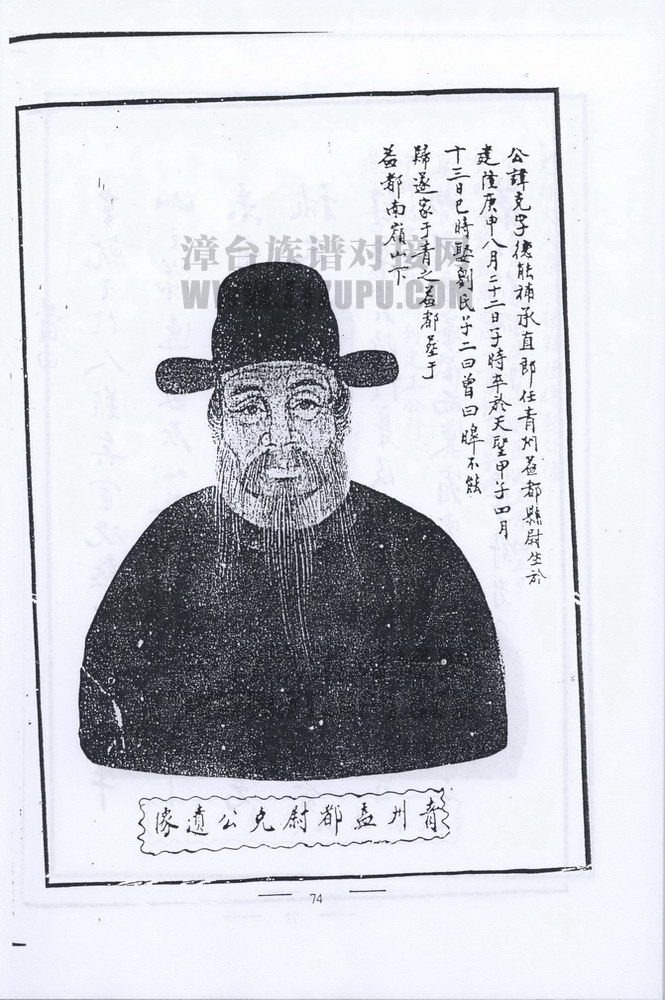 公諱克字德能補承直郎任青州益都縣尉生於
建隆庚申八月二十二日子時卒於天聖甲子四月
十三日巳時娶劉氏子二曰曾曰皞不能
歸遂家于青之益都塟于
益都南嶺山下
漳台族谱对接网
青州益都尉克公遺像
74